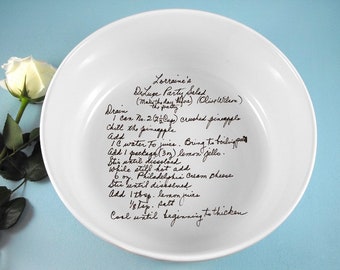 Lorraine's
DeLuxe Party Salad
(Make the day before) (Olive Wilson)
the party
Drain
1 can No. 2 (2½ Cups) crushed pineapple
Chill the pineapple
Add
1 C water to juice. Bring to boiling point
Add 1 package (3 oz) lemon jello
Stir until dissolved
While still hot add
6 oz. Philadelphia Cream Cheese
Stir until dissolved
Add 1 tbsp. lemon juice
⅛ tsp. salt
Cool until beginning to thicken